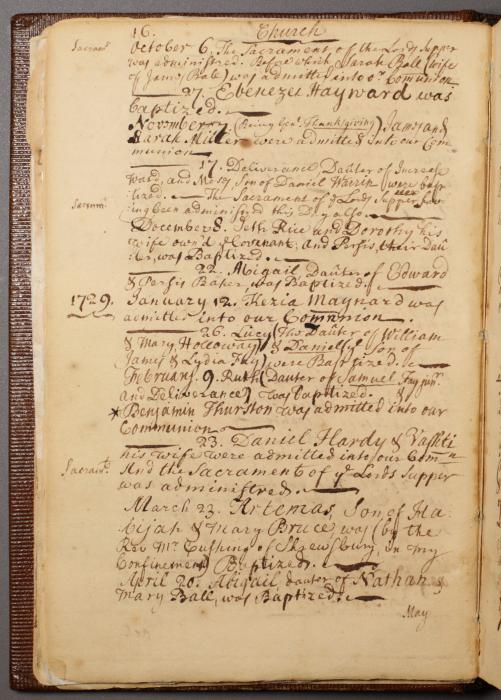 16. Church
Sacramt October 6. The Sacrament of the Lords Supper
was administred. Before which Sarah Ball (wife
of James Ball) was admitted into or Comunion
27. Ebenezer Hayward was
baptized.
November 7. (Being Genl Thanksgiving) James and
Sarah Miller were admitted into our Com
munion
17. Deliverance, Dauter of Increase
Ward, and Mosy, Son of Daniel Warrin (were bap
tized. The Sacrament of ye Lords Supper hav
Sacramt ing been administred this Day also.
December 8. Seth Rice and Dorothy his
wife own'd ye Covenant, and Persis, their Dau
ter, was Baptized.
22. Abigail Dauter of Edward
& Persis Baker, was Baptized.
1729. January 12. Kezia Maynard was
admitted into our Communion.
26. Lucy (The Dauter of William
& Mary Holloway) & Daniel (ye son of
James & Lydia Fay) were Baptized.
February 9. Ruth (Dauter of Samuel Fay junr
and Deliverance) was baptized. &
* Benjamin Thurston was admitted into our
Communion
23. Daniel Hardy & Vashti
his wife were admitted into our Comn
Sacramt And the Sacrament of ye Lords Supper
was administred.
March 23. Artemas, Son of Ha
bijah & Mary Bruce, was (by the
Rev Mr Cushing of Shrewsbury, in my
Confinement) Baptized.
April 20. Abigail dauter of Nathan &
Mary Ball, was Baptized.
May